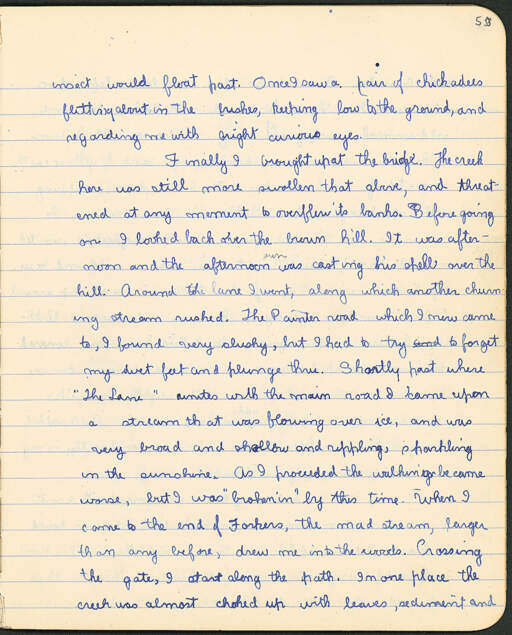 59
insect would float past. Once I saw a pair of chickadees
flitting about in the bushes, keeping low to the ground, and
regarding me with bright curious eyes.
Finally I brought up at the bridge. The creek
here was still more swollen that above, and threat-
ened at any moment to overflow its banks. Before going
on I looked back over the brown hill. It was after-
noon and the afternoon sun was casting his spell over the
hill. Around the lane I went, along which another churn-
ing stream rushed. The Painter road which I now came
to, I found very slushy, but I had to try to forget
my wet feet and plunge thru. Shortly past where
"The Lane" unites with the main road I came upon
a stream that was blowing over ice, and was
very broad and shallow and rippling, sparkling
in the sunshine. As I proceeded the walking became
worse, but I was "broken in" by this time. When I
came to the end of Forkers, the mad stream, larger
than any before, drew me into the woods. Crossing
the gate, I start along the path. In one place the
creek was almost choked up with leaves, sediment and